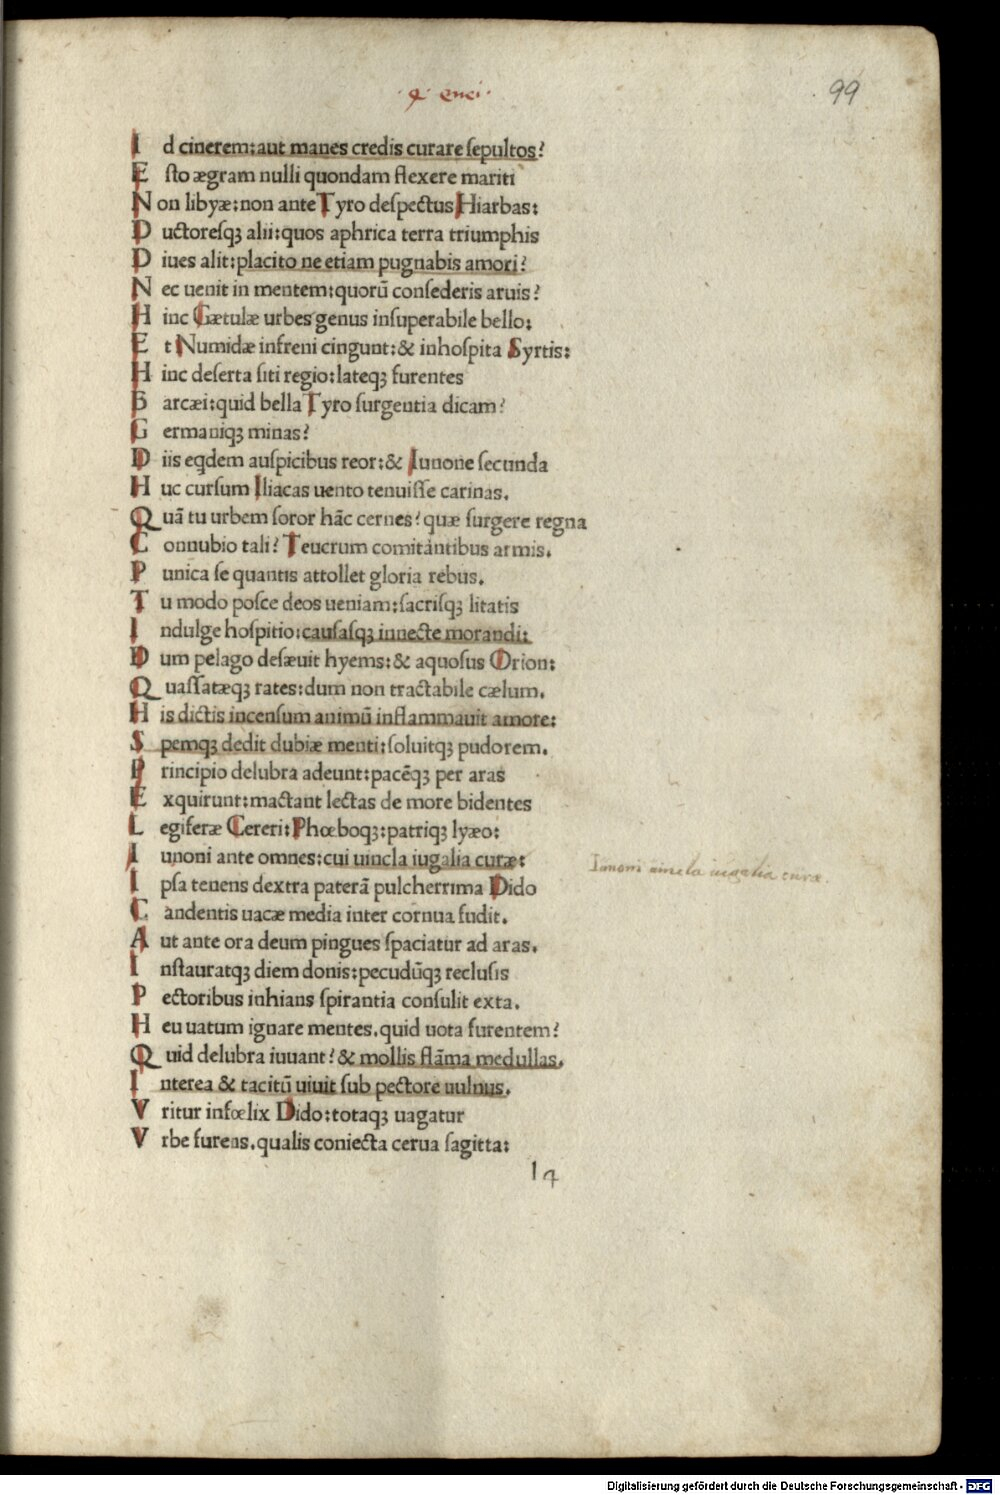 ·4· enei·
99
I d cinerem:aut manes credis curare ſepultos?
E ſto ægram nulli quondam flexere mariti
N on libyæ:non ante Tyro deſpectus Hiarbas:
D uctoreſqꝫ alii:quos aphrica terra triumphis
D iues alit:placito ne etiam pugnabis amori?
N ec uenit in mentem:quorū conſederis aruis?
H inc Gætulæ urbes genus inſuperabile bello:
E t Numidæ infreni cingunt:& inhoſpita Syrtis:
H inc deſerta ſiti regio:lateqꝫ furentes
B arcæi:quid bella Tyro ſurgentia dicam?
G ermaniqꝫ minas?
D iis eqdem auſpicibus reor:& Iunone ſecunda
H uc curſum Iliacas uento tenuiſſe carinas.
Q uā tu urbem ſoror hāc cernes? quæ ſurgere regna
C onnubio tali? Teucrum comitantibus armis.
P unica ſe quantis attollet gloria rebus.
T u modo poſce deos ueniam:ſacriſqꝫ litatis
I ndulge hoſpitio:cauſaſqꝫ innecte morandi:
D um pelago deſæuit hyems:& aquoſus Orion:
Q uaſſatæqꝫ rates:dum non tractabile cælum.
H is dictis incenſum animū inflammauit amore:
S pemqꝫ dedit dubiæ menti:ſoluitqꝫ pudorem.
P rincipio delubra adeunt:pacēqꝫ per aras
E xquirunt:mactant lectas de more bidentes
L egiferæ Cereri:Phœboqꝫ:patriqꝫ lyæo:
I unoni ante omnes:cui uincla iugalia curæ:
Iunoni uincla iugalia curæ.
I pſa tenens dextra paterā pulcherrima Dido
C andentis uacæ media inter cornua fudit.
A ut ante ora deum pingues ſpaciatur ad aras.
I nſtauratqꝫ diem donis:pecudūqꝫ recluſis
P ectoribus inhians ſpirantia conſulit exta.
H eu uatum ignare mentes.quid uota furentem?
Q uid delubra iuuant? & mollis flāma medullas.
I nterea & tacitū uiuit ſub pectore uulnus.
V ritur infœlix Dido:totaqꝫ uagatur
V rbe furens.qualis coniecta cerua ſagitta:
l4
Digitalisierung gefördert durch die Deutsche Forschungsgemeinschaft - DFG